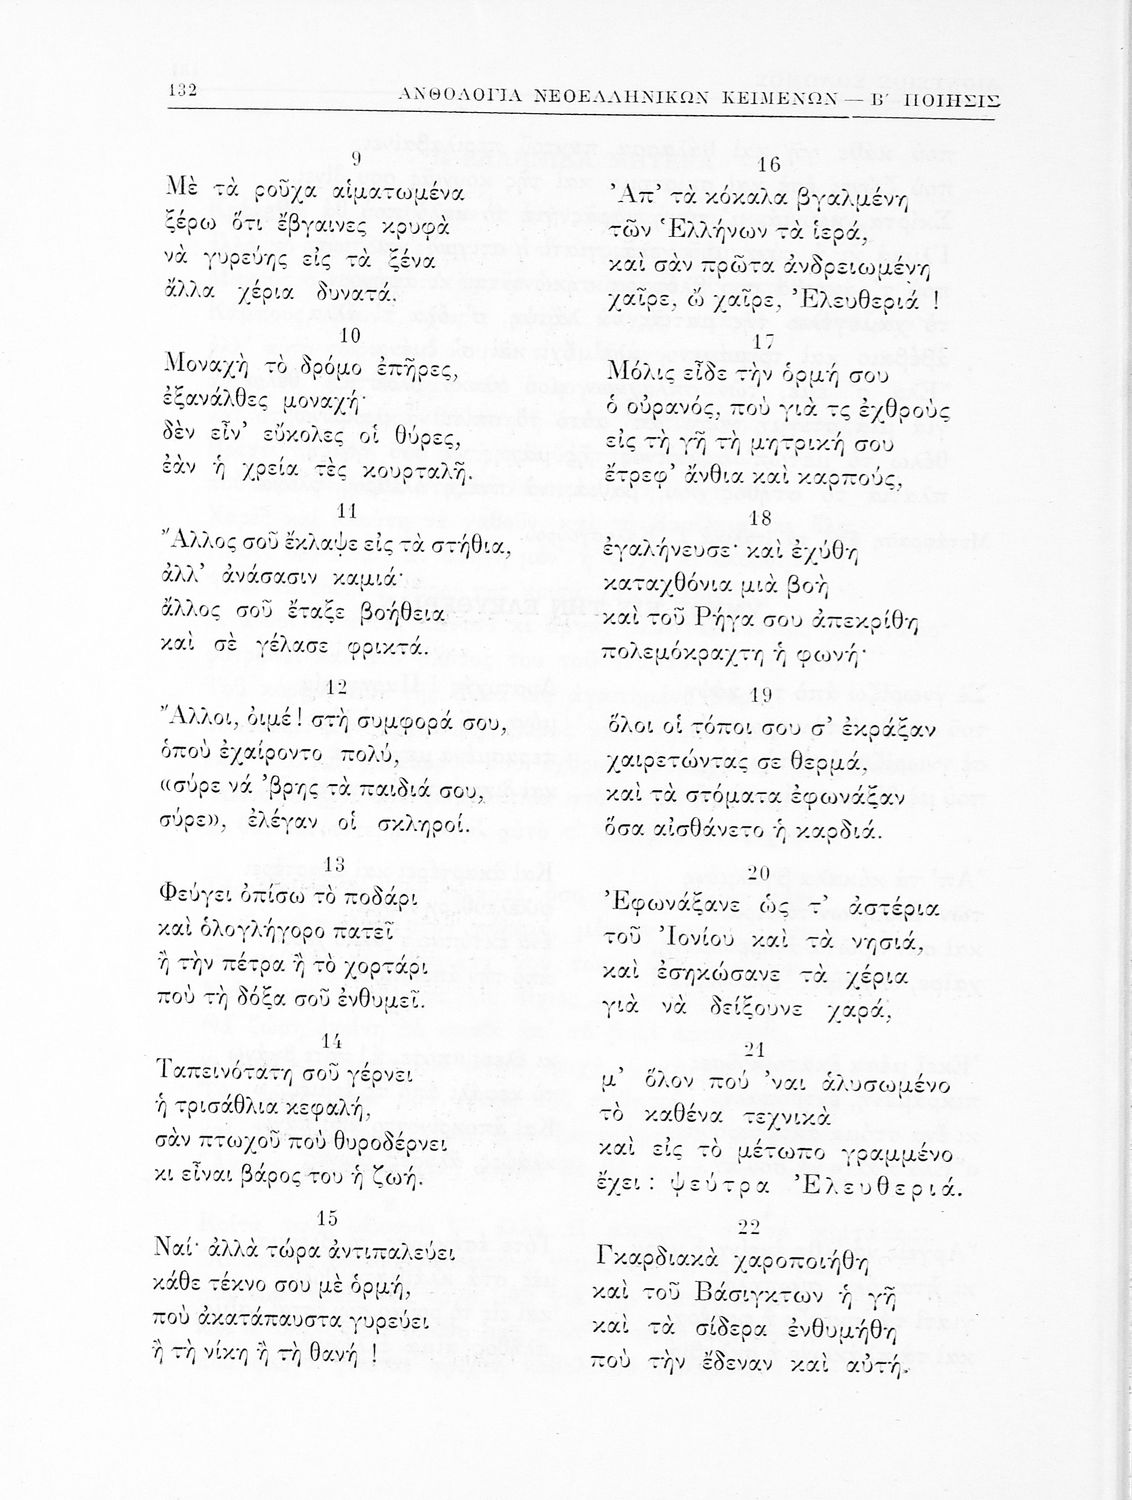 132
ΑΝΘΟΛΟΓΙΑ ΝΕΟΕΛΛΗΝΙΚΩΝ ΚΕΙΜΕΝΩΝ — Β΄ ΠΟΙΗΣΙΣ
9
Μὲ τὰ ροῦχα αἱματωμένα
ξέρω ὅτι ἔβγαινες κρυφὰ
νὰ γυρεύῃς εἰς τὰ ξένα
ἄλλα χέρια δυνατά.
10
Μοναχὴ τὸ δρόμο ἐπῆρες,
ἐξανάλθες μοναχή·
δὲν εἶν’ εὔκολες οἱ θύρες,
ἐὰν ἡ χρεία τὲς κουρταλῇ.
11
Ἄλλος σοῦ ἔκλαψε εἰς τὰ στήθια,
ἀλλ’ ἀνάσασιν καμιά·
ἄλλος σοῦ ἔταξε βοήθεια
καὶ σὲ γέλασε φρικτά.
12
Ἄλλοι, ὀιμέ! στὴ συμφορά σου,
ὁποὺ ἐχαίροντο πολύ,
«σύρε νά ’βρης τὰ παιδιά σου,
σύρε», ἐλέγαν οἱ σκληροί.
13
Φεύγει ὀπίσω τὸ ποδάρι
καὶ ὁλογλήγορο πατεῖ
ἢ τὴν πέτρα ἢ τὸ χορτάρι
ποὺ τὴ δόξα σοῦ ἐνθυμεῖ.
14
Ταπεινότατη σοῦ γέρνει
ἡ τρισάθλια κεφαλή,
σὰν πτωχοῦ ποὺ θυροδέρνει
κι εἶναι βάρος του ἡ ζωή.
15
Ναί· ἀλλὰ τώρα ἀντιπαλεύει
κάθε τέκνο σου μὲ ὁρμή,
ποὺ ἀκατάπαυστα γυρεύει
ἢ τὴ νίκη ἢ τὴ θανή !
16
’Απ’ τὰ κόκαλα βγαλμένη
τῶν Ἑλλήνων τὰ ἱερά,
καὶ σὰν πρῶτα ἀνδρειωμένη
χαῖρε, ὢ χαῖρε, Ἐλευθεριά !
17
Μόλις εἶδε τὴν ὁρμή σου
ὁ οὐρανός, ποὺ γιὰ τς ἐχθροὺς
εἰς τὴ γῆ τὴ μητρική σου
ἔτρεφ’ ἄνθια καὶ καρπούς,
18
ἐγαλήνευσε· καὶ ἐχύθη
καταχθόνια μιὰ βοὴ
καὶ τοῦ Ρήγα σου ἀπεκρίθη
πολεμόκραχτη ἡ φωνή·
19
ὅλοι οἱ τόποι σου σ’ ἐκράξαν
χαιρετώντας σε θερμά,
καὶ τὰ στόματα ἐφωνάξαν
ὅσα αἰσθάνετο ἡ καρδιά.
20
Ἐφωνάξανε ὡς τ’ ἀστέρια
τοῦ Ἰονίου καὶ τὰ νησιά,
καὶ ἐσηκώσανε τὰ χέρια
γιὰ νὰ δείξουνε χαρά,
21
μ’ ὅλον πού ’ναι ἁλυσωμένο
τὸ καθένα τεχνικὰ
καὶ εἰς τὸ μέτωπο γραμμένο
ἔχει : ψεύτρα Ἐλευθεριά.
22
Γκαρδιακὰ χαροποιήθη
καὶ τοῦ Βάσιγκτων ἡ γῆ
καὶ τὰ σίδερα ἐνθυμήθη
ποὺ τὴν ἔδεναν καὶ αὐτή.